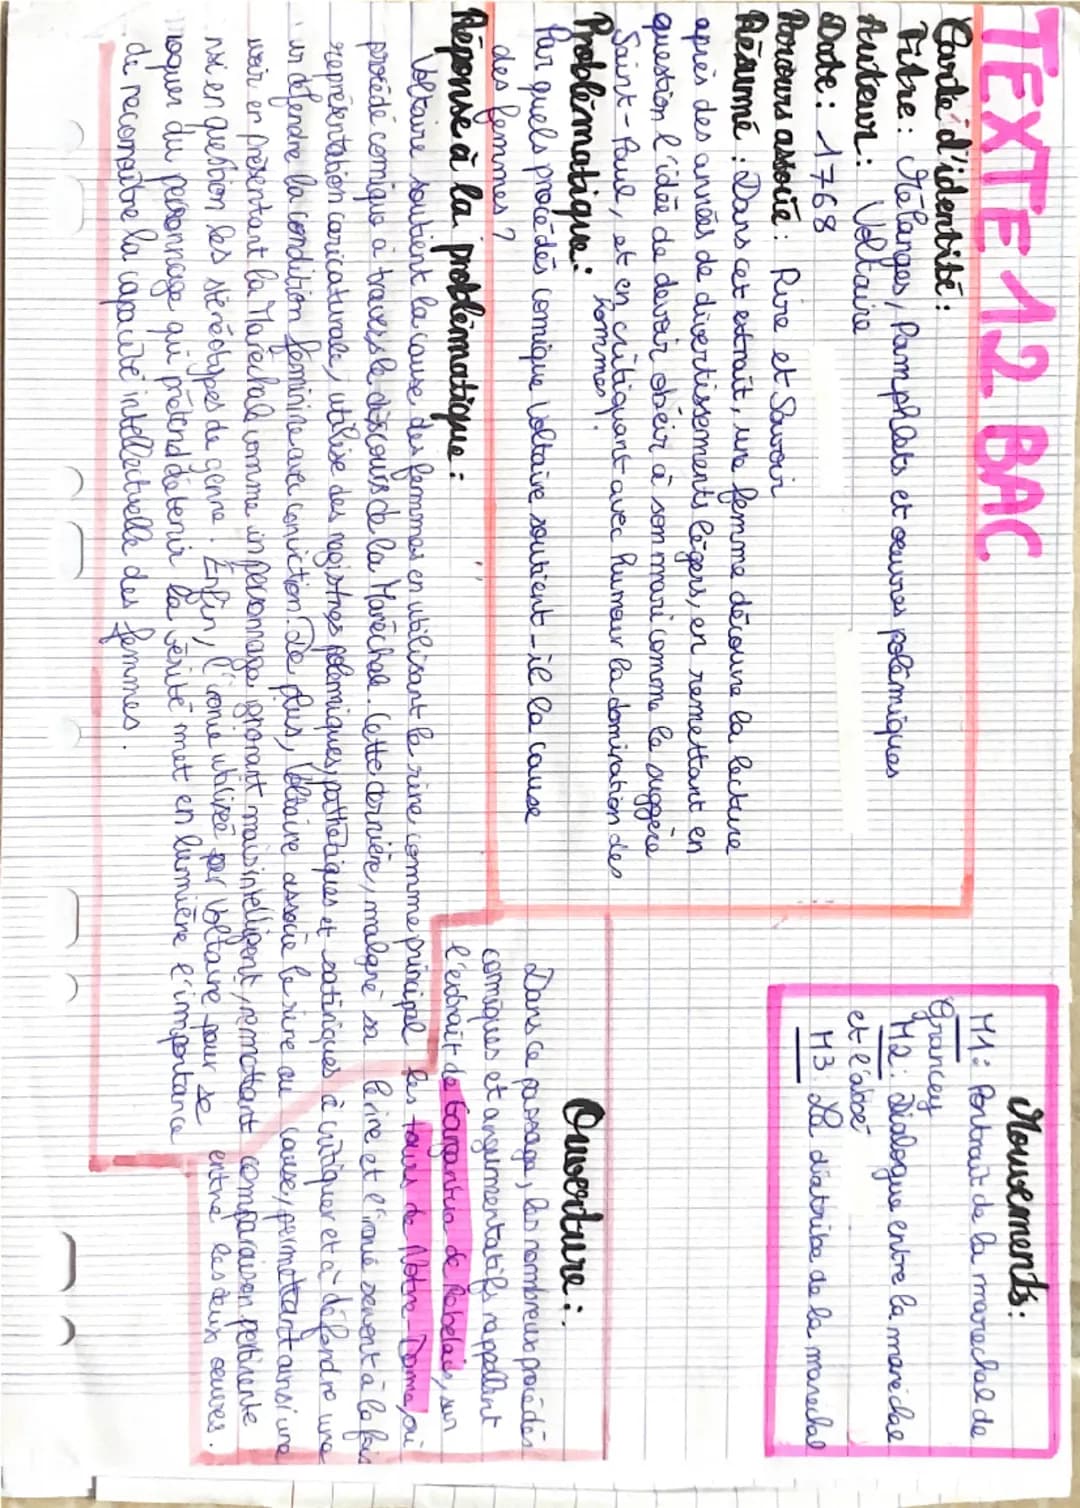 TEXTE 12 BAC
Carte d'identité :
Titre : Mélanges, Pamphlets et œuvres polémiques
Auteur : Voltaire
Date : 1768
Parcours associé : Rire et Savoir
Résumé : Dans cet extrait, une femme découvre la lecture
après des années de divertissements légers, en remettant en
question l'idée de devoir obéir à son mari comme le suggère
Saint-Paul, et en critiquant avec humour la domination des
hommes.
Problématique :
Par quels procédés comique Voltaire soutient-il la cause
des femmes ?
Réponse à la problématique :
Voltaire soutient la cause des femmes en utilisant le rire comme principal
procédé comique à travers le discours de la Maréchale. Cette dernière, malgré sa
représentation caricaturale, utilise des registres polémiques, pathétiques et satiriques à
défendre la condition féminine avec conviction. De plus, Voltaire associe le rire au
en présentant la Maréchale comme un personnage ignorant mais intelligent, remettant
en question les stéréotypes de genre. Enfin, l'ironie utilisée par Voltaire pour se
moquer du personnage qui prétend détenir la vérité met en lumière l'importance
de reconnaître la capacité intellectuelle des femmes.
Mouvements :
M1 : Portrait de la marechal de
Grancey
M2 : Dialogue entre la maréchae
et l'abbé
M3 : La diatribe de la marechal
Ouverture :
Dans ce passage, les nombreux procédés
comiques et argumentatifs rappellent
l'extrait de Gargantua de Rabelais, sur
les tours de Notre Dame, où
le rire et l'ironie servent à la fois
critiquer et à défendre une
cause, permettant ainsi une
comparaison pertinente
entre les deux œuvres.